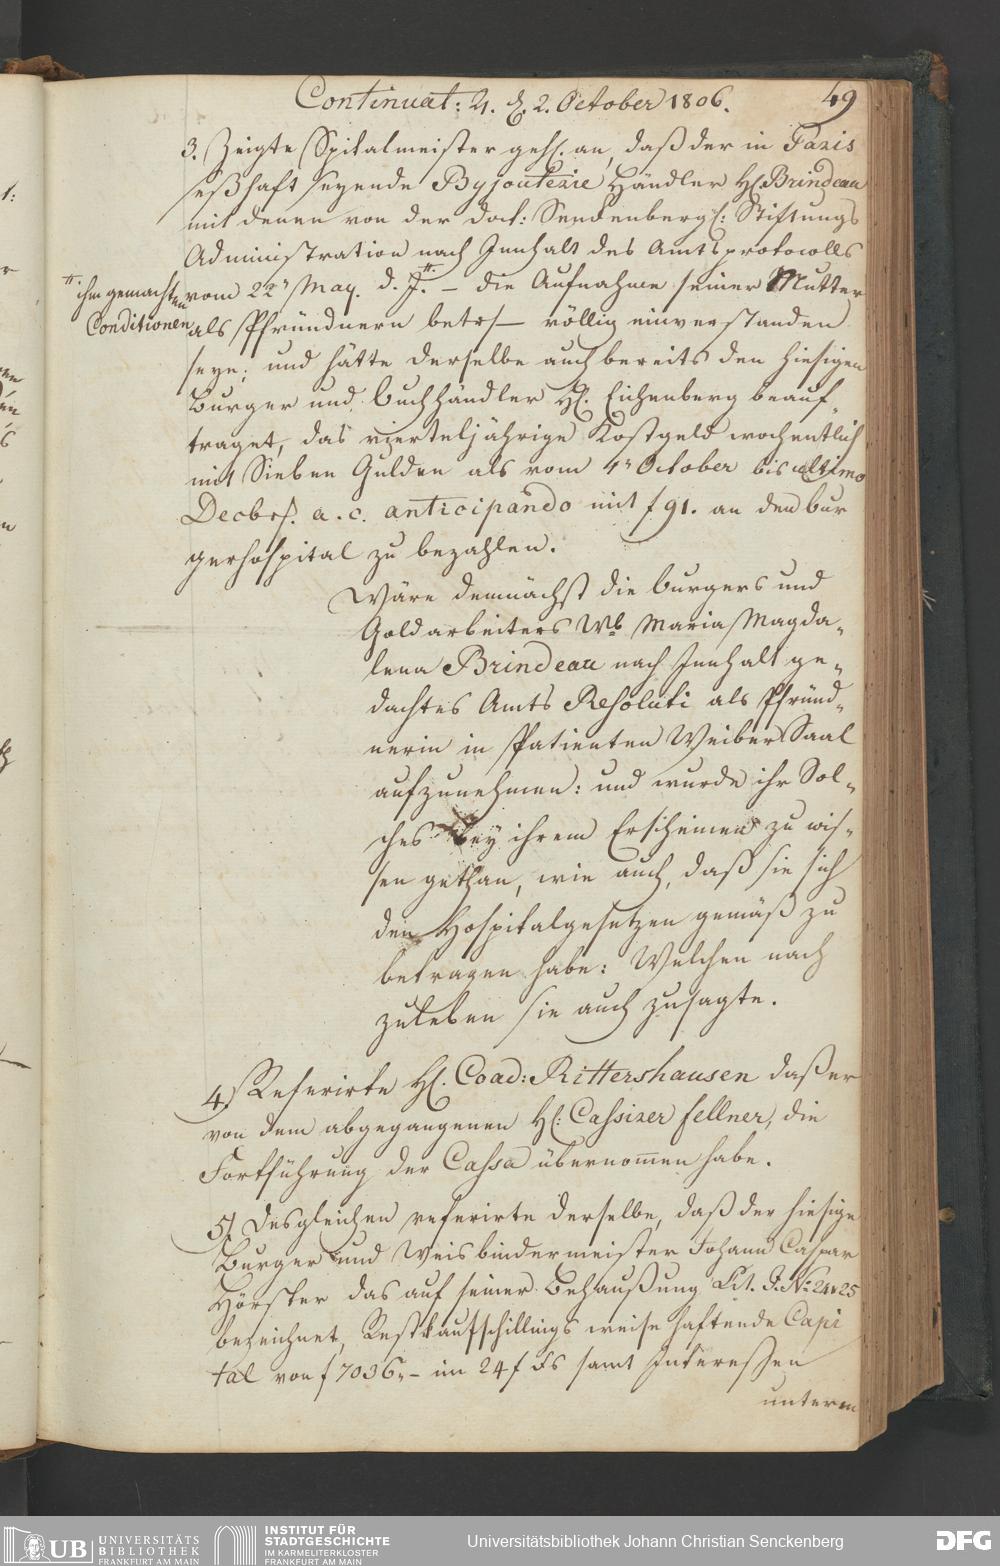 Continuat: 4. d. 2. October 1806.
49
3. Zeigte Spitalmeister gehs. an, daß der in Paris
seßhaft seyende Byjouterie Händler H. Brindeau
mit denen von der doct: Senckenbergs: Stiftungs
Administration nach Innhalt des Amtsprotocolls
vom 22n May. d. J. # — die Aufnahme seiner Mutter
# ihm gemachten
Conditionen
als Pfründnern betr — völlig einverstanden
seye; und hätte derselbe auch bereits den hiesigen
Burger und Buchhändler H. Eichenberg beauf„
traget, das vierteljährige Kostgeld wochentlich
mit Sieben Gulden als vom 4n October bis ultimo
Decbrs. a. c. anticipando mit f 91. an den bur
gerhospital zu bezahlen.
Wäre demnächst die burgers und
Goldarbeiters Wb Maria Magda„
lena Brindeau nach Innhalt ge„
dachtes Amts Resoluti als Pfründ„
nerin in Patienten Weiber Saal
aufzunehmen: und wurde ihr Sol„
ches bey ihrem Erscheinen zu wis„
sen gethan, wie auch, daß sie sich
den Hospitalgesetzen gemäß zu
betragen habe: Welchen nach
zuleben sie auch zusagte.
4.) Referirte H. Coad: Rittershausen daß er
von dem abgegangenen H: Cassirer Fellner, die
Fortführung der Cassa übernom̄en habe.
5) Desgleichen referirte derselbe, daß der hiesige
Burger und Weisbindermeister Johann Caspar
Hörster das auf seiner Behaußung Lit. J. No: 24 & 25
bezeichnet, Restkaufschillings weise haftende Capi
tal von f 7036„— im 24 f Fs samt Interessen
unterm
UB UNIVERSITÄTS
BIBLIOTHEK
FRANKFURT AM MAIN
INSTITUT FÜR
STADTGESCHICHTE
IM KARMELITERKLOSTER
FRANKFURT AM MAIN
Universitätsbibliothek Johann Christian Senckenberg
DFG